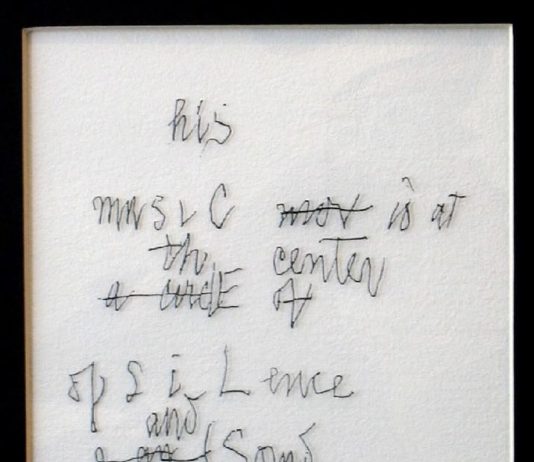 his
music is at
the center
a circlE of
of SiLence
and